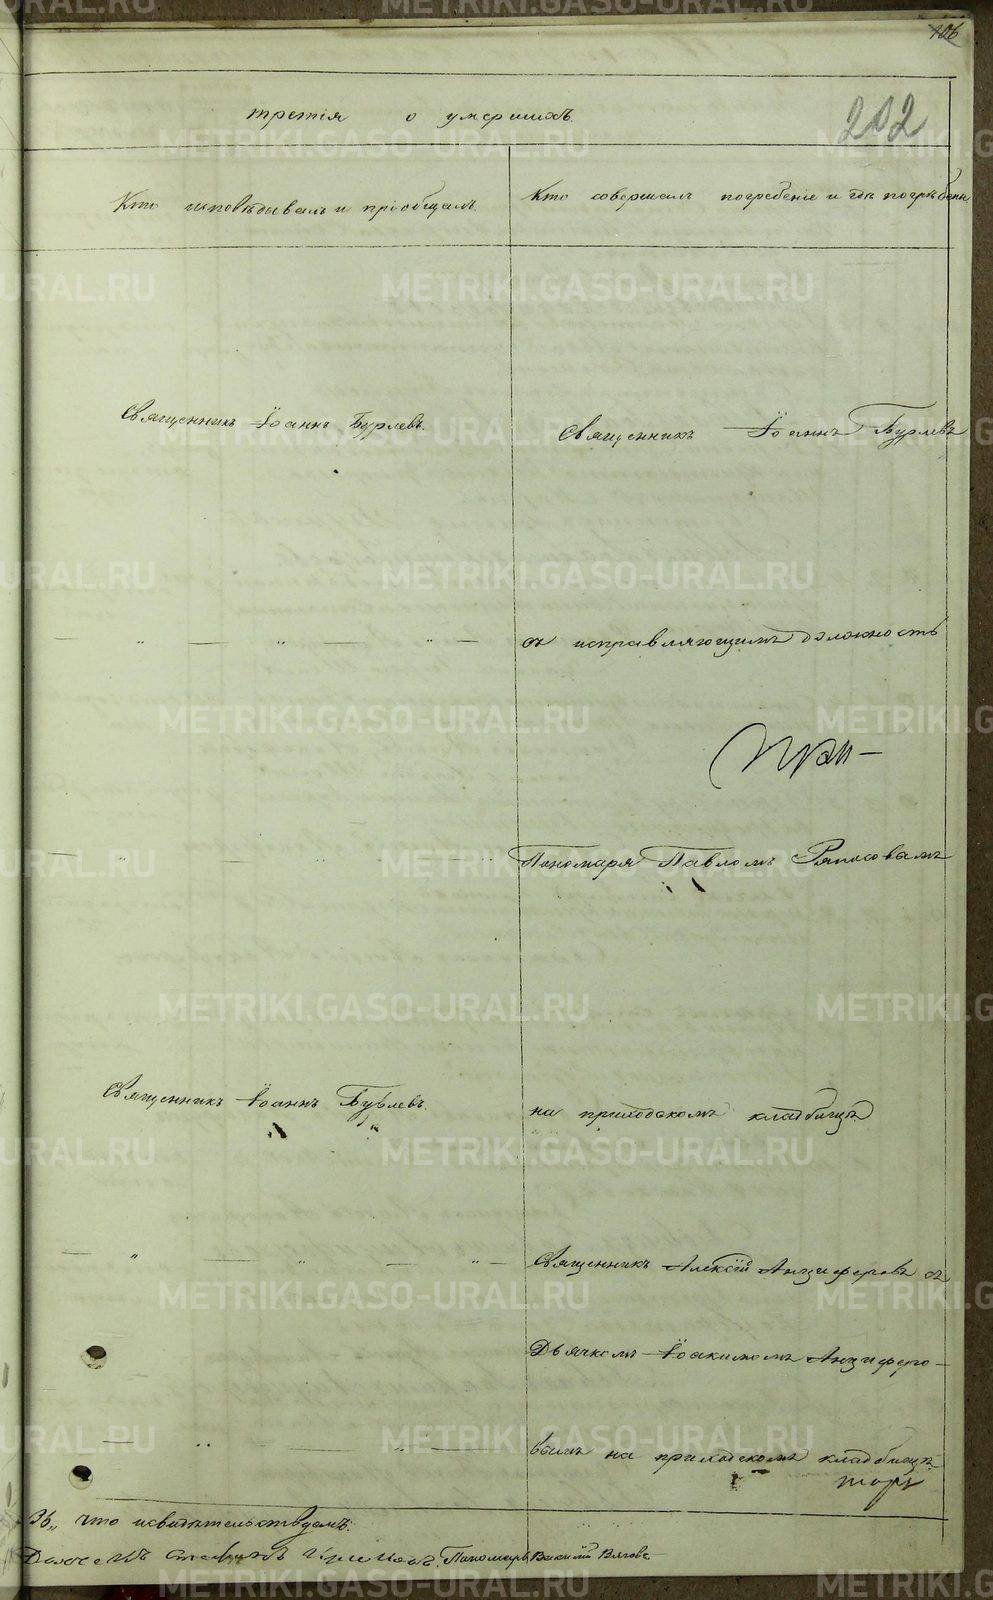 106
третiя о умершихъ.
202
Кто исповѣдывалъ и прiобщалъ.
Кто совершалъ погребенiе и гдѣ погребены
Священникъ Iоаннъ Бурлевъ.
Священникъ Iоаннъ Бурлевъ
— „ — „ — „ —
съ исправляющимъ должность
Пономаря Павломъ Ряпосовымъ
Священникъ Iоаннъ Бурлевъ.
на приходскомъ кладбищѣ
— „ — „ — „ —
Священникъ Алексiй Анциферовъ съ
Дьячкомъ Iоакимомъ Анциферо-
вымъ на приходскомъ кладбищѣ
что и свидѣтельствуемъ:
Пономарь Василiй
METRIKI.GASO-URAL.RU